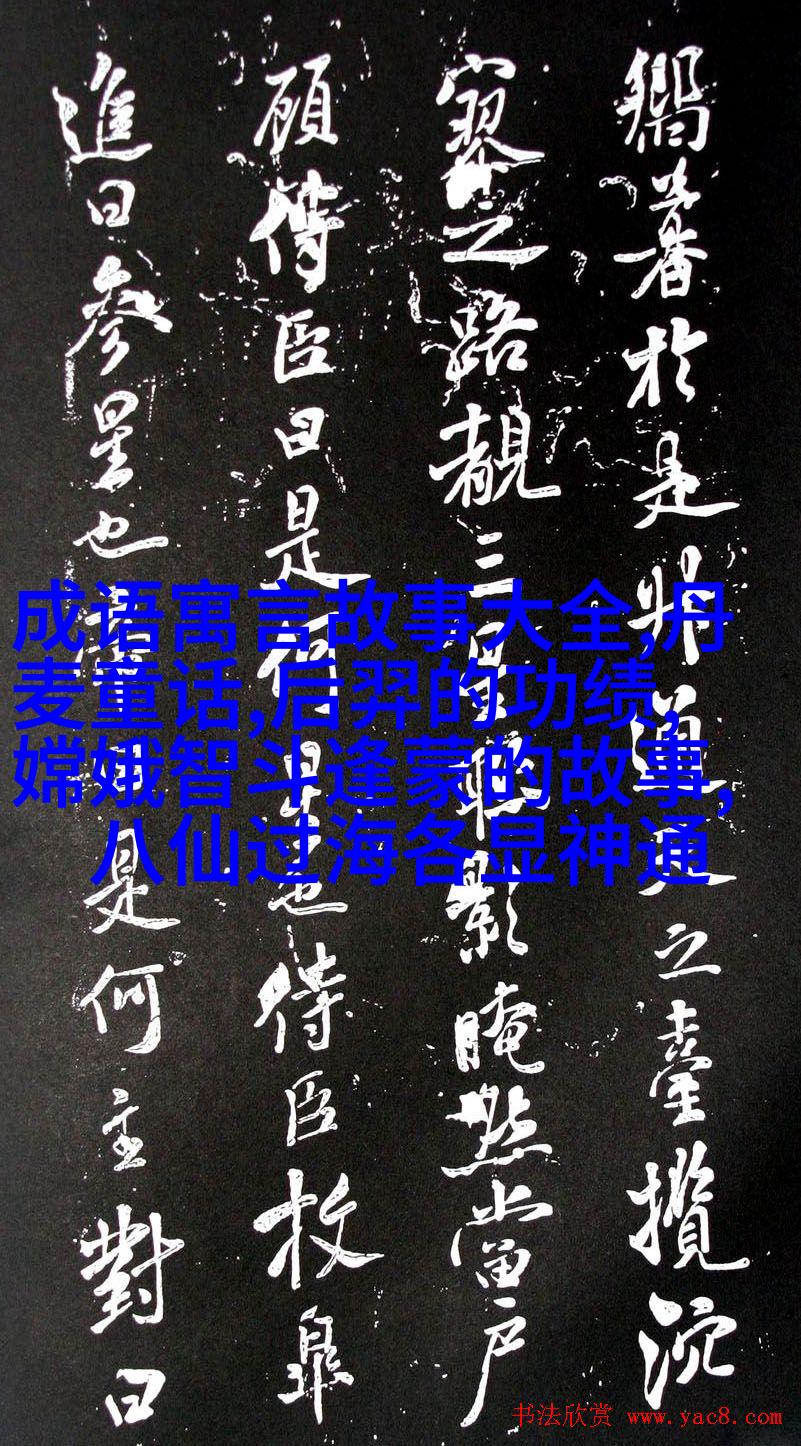 於是升通天之臺攬泬
寥之路覩三影晻然當戶
顧侍臣曰是何星也侍臣枚皐
進曰參星也是何主對曰
成语寓言故事大全,丹
麦童话,后羿的功绩,
嫦娥智斗逢蒙的故事,
八仙过海各显神通
书法欣赏 www.yac8.com